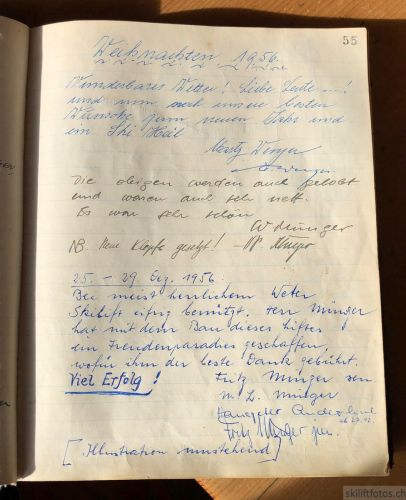 55
Weihnachten 1956.
Wunderbares Wetter! Liebe Leute ...!
und nun noch unsere besten
Wünsche zum neuen Jahr und
ein Ski Heil
Wenger
Die obigen werden auch gelobt
und waren auch sehr nett.
Es war sehr schön
W Münger
NB. Neue Köpfe gesetzt!
25. – 29. Dez. 1956.
Bei meist herrlichem Weter
Skilift eifrig benützt. Herr Münger
hat mit dem Bau dieses Liftes
ein Freudenparadies geschaffen,
wofür ihm der beste Dank gebührt.
Viel Erfolg! Fritz Münger sen
M. L. Münger
Fritz Münger jun.
[Illustration umstehend]
skiliftfotos.ch